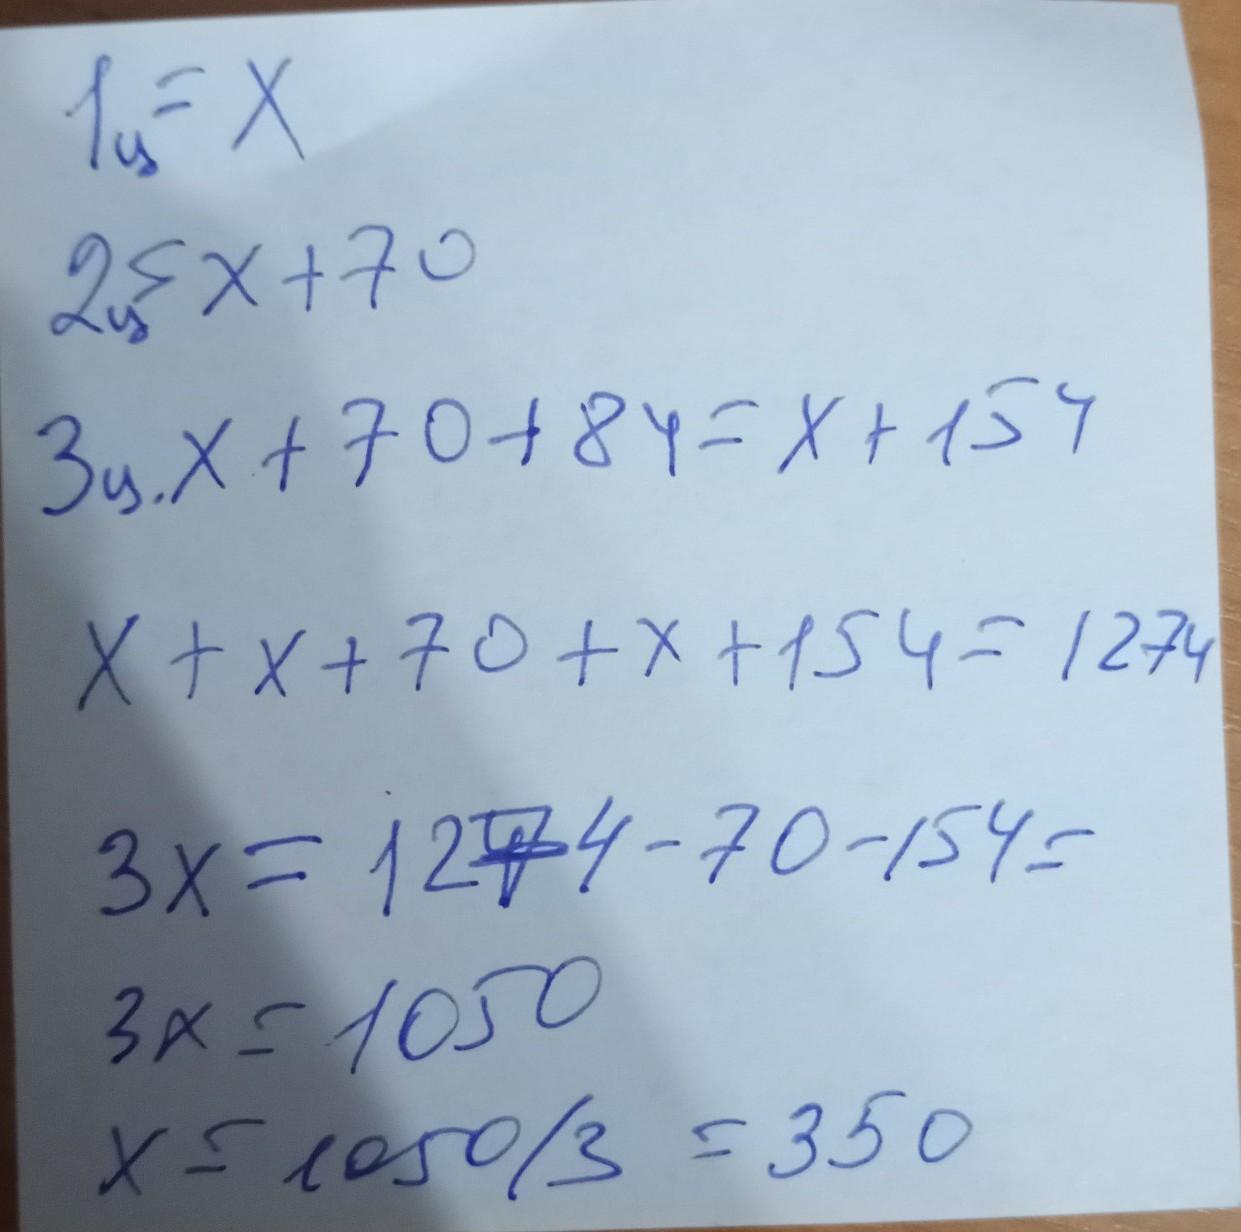 1ц = x
2ц = x + 70
3ц. x + 70 + 84 = x + 154
x + x + 70 + x + 154 = 1274
3x = 1274 - 70 - 154 =
3x = 1050
x = 1050/3 = 350